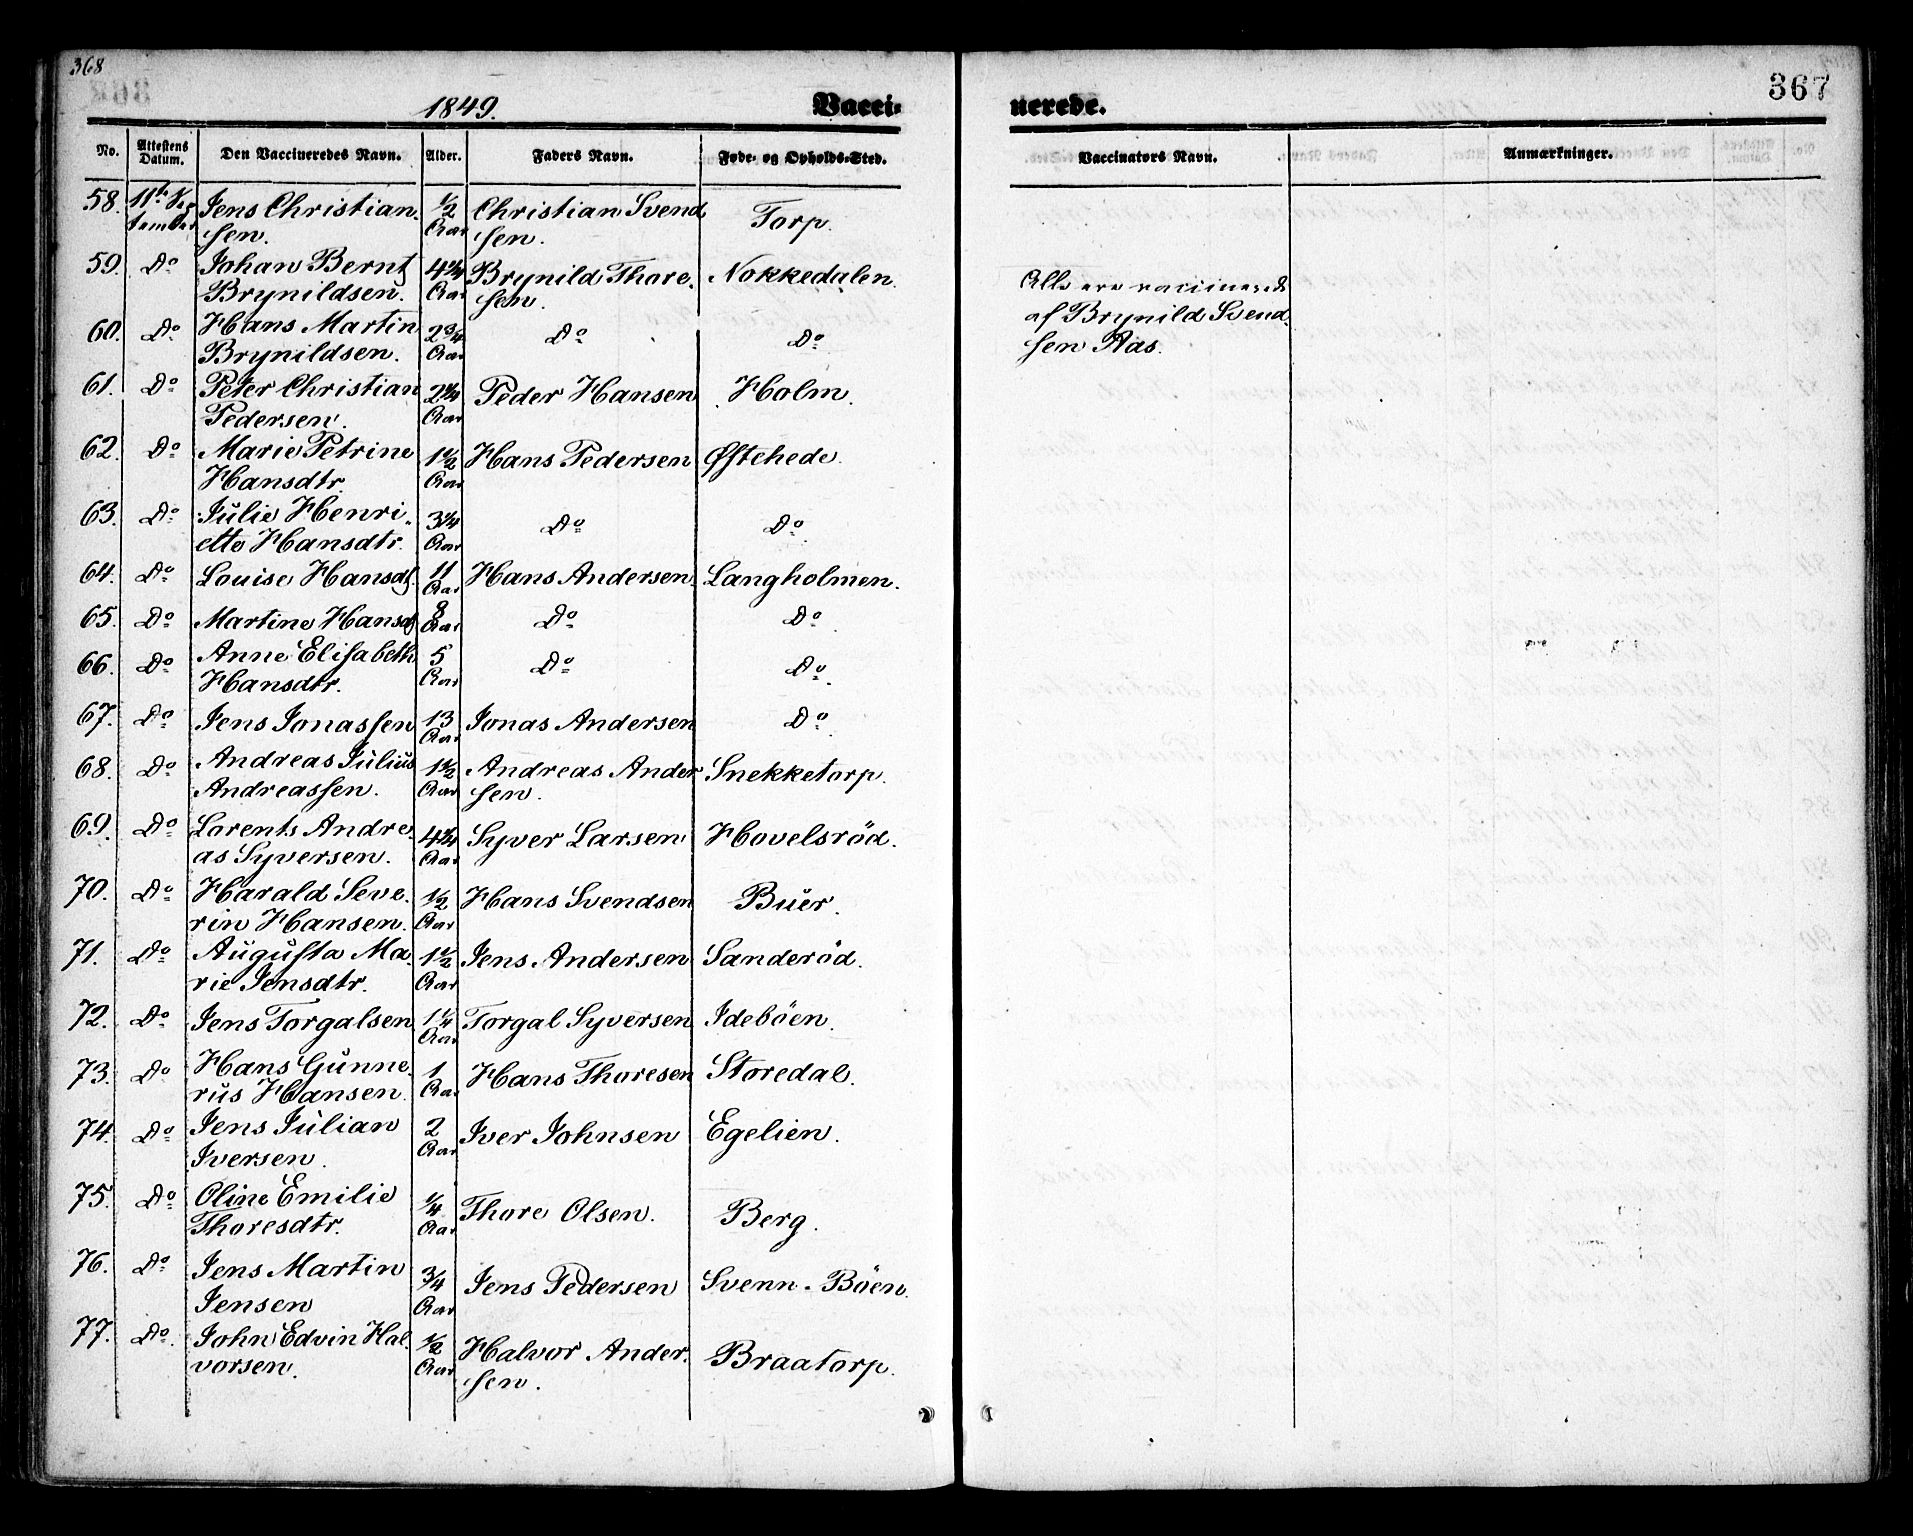 368
367
1849.
Vacci-
nerede.
No. Attestens Datum. Den Vaccineredes Navn. Alder. Faders Navn. Føde- og Opholds-Sted. Vaccinators Navn. Anmærkninger.
58. 11te Sep Jens Christian- 1/2 Christian Svend Torp.
tember sen. Aar sen.
59. Do Johan Bernt 4 1/4 Brynild Thore- Nokkedalen.
Brynildsen. Aar sen.
Alle ere vaccinerede
af Brynild Svend-
sen Aas.
60. Do Hans Martin 2 3/4 Do Do
Brynildsen. Aar
61. Do Peter Christian 2 1/4 Peder Hansen Holm.
Pedersen. Aar
62. Do Marie Petrine 1 1/2 Hans Pedersen Østehede.
Hansdtr. Aar
63. Do Julie Henri- 3 1/4 Do Do
ette Hansdtr. Aar
64. Do Louise Hansdt. 11 Hans Andersen. Langholmen.
Aar
65. Do Martine Hansdt 8 Do Do
Aar
66. Do Anne Elisabeth 5 Do Do
Hansdtr. Aar
67. Do Jens Jonassen 13 Jonas Andersen Do
Aar
68. Do Andreas Julius 1 1/2 Andreas Ander Snekketorp.
Andreassen. Aar sen.
69. Do Lorents Andre- 4 1/4 Syver Larsen Hovelsröd.
as Syversen. Aar
70. Do Harald Seve- 1/2 Hans Svendsen Buer.
rin Hansen. Aar
71. Do Augusta Ma- 1 1/2 Jens Andersen Sanderöd.
rie Jensdtr. Aar
72. Do Jens Torgalsen 1 1/4 Torgal Syversen Ideböen.
Aar
73. Do Hans Gunne- 1 Hans Thoresen Storedal.
rus Hansen. Aar
74. Do Jens Julian 2 Iver Johnsen Egelien.
Iversen. Aar
75. Do Oline Emilie 1/4 Thore Olsen. Berg.
Thoresdtr. Aar
76. Do Jens Martin 3/4 Jens Pedersen Svenn-Böen.
Jensen Aar
77. Do John Edvin Hal- 1/2 Halvor Ander- Braatorp.
vorsen. Aar sen.